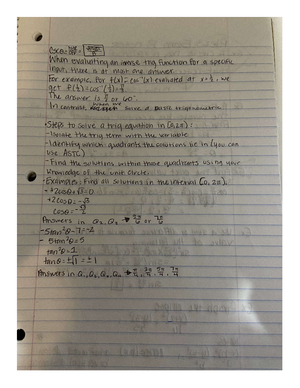 When evaluating an inverse trig function for a specific
input, there is at most one answer.
For example, for f(x) = cos⁻¹(x) evaluated at x = ½, we
get f(½) = cos⁻¹(½) = π/3
The answer is π/3 or 60°
In contrast, when we solve a trigonometric
• Steps to solve a trig equation in [0, 2π):
- Isolate the trig term with the variable
- Identify which quadrants the solutions lie in (you can
use ASTC)
- Find the solutions within those quadrants using your
knowledge of the unit circle.
• Examples: Find all solutions in the interval [0, 2π).
2cosθ + √3 = 0
2cosθ = -√3
cosθ = -√3/2
Answers in Q₂, Q₃ → 5π/6 or 7π/6
- 5tan²θ - 7 = -2
5tan²θ = 5
tan²θ = 1
tanθ = ±√1 = ±1
Answers in Q₁, Q₂, Q₃, Q₄ → π/4, 3π/4, 5π/4, 7π/4